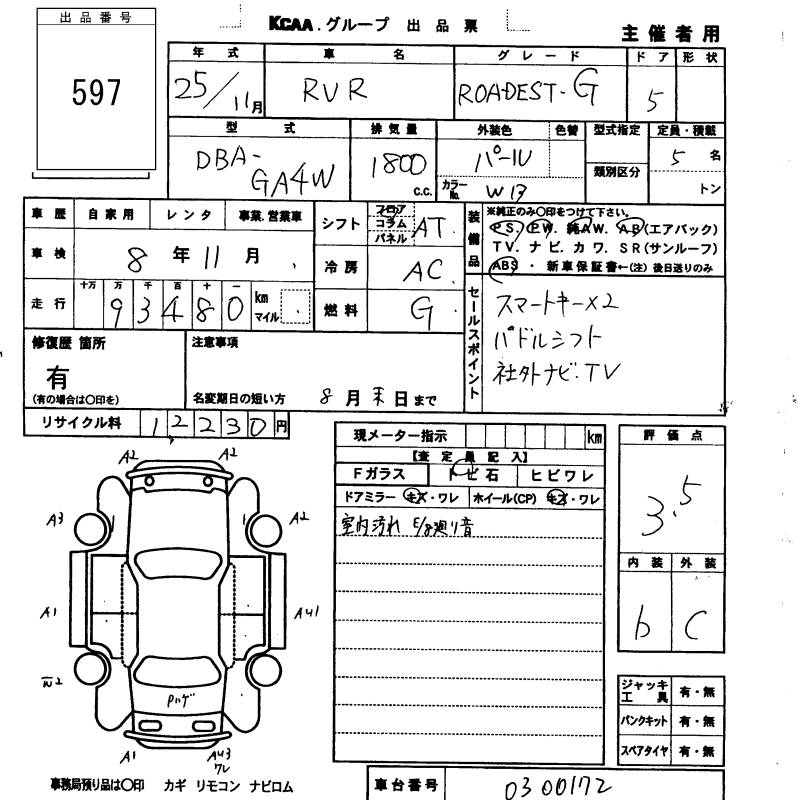 出品番号
597
KCAA.グループ 出品票
主催者用
年式 車名 グレード ドア 形状
25/11月 RVR ROADEST-G 5
型式 排気量 外装色 色替 型式指定 定員・積載
DBA-GA4W 1800 c.c. パール 類別区分 5 名
カラーNo. W13 トン
車歴 自家用 レンタ 事業.営業車
車検 8年11月
走行 十万 万 千 百 十 一
93480 km マイル
シフト フロア コラム パネル AT
冷房 AC
燃料 G
装備品 ※純正のみ○印をつけて下さい。
PS. PW. 純AW. AB(エアバック)
TV. ナビ. カワ. SR(サンルーフ)
ABS ・ 新車保証書←(注) 後日送りのみ
セールスポイント
スマートキー×2
パドルシフト
社外ナビ・TV
修復歴 箇所
有
(有の場合は○印を)
注意事項
名変期日の短い方 8月末日まで
リサイクル料 12230円
現メーター指示 km
【査定員記入】
Fガラス トビ石 ヒビワレ
ドアミラー キズ・ワレ ホイール(CP) キズ・ワレ
室内汚れ E/g廻り音
評価点
3.5
内装 外装
b C
A2 A2
A3 A2
A1 AU1
W2
Pハゲ
A1 AU3
ワレ
ジャッキ工具 有・無
パンクキット 有・無
スペアタイヤ 有・無
事務局預り品は○印 カギ リモコン ナビロム
車台番号 0300172